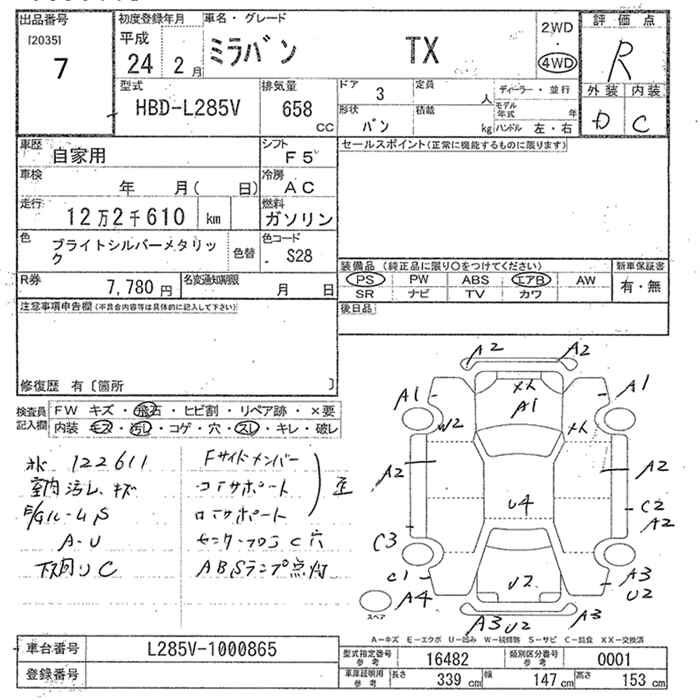 出品番号
[2035]
7
初度登録年月
平成
24 2 月
車名・グレード
ミラバン TX
2WD
4WD
評価点
R
外装 内装
D C
型式
HBD-L285V
排気量
658
CC
ドア 3
形状
バン
定員
人
積載
kg
ディーラー・並行
モデル年式 年
ハンドル 左・右
車歴
自家用
シフト
F5
車検
年 月( 日)
冷房
AC
走行
12万2千610 km
燃料
ガソリン
色
ブライトシルバーメタリック
色替
色コード
S28
R券
7,780 円
名変通知期限
月 日
セールスポイント(正常に機能するものに限ります)
装備品 (純正品に限り○をつけてください)
PS PW ABS エアB AW
SR ナビ TV カワ
新車保証書
有・無
後日品
注意事項申告欄(不具合内容等は具体的に記入して下さい)
修復歴 有〔箇所 〕
検査員記入欄
FW キズ・飛石・ヒビ割・リペア跡・×要
内装 キズ・汚レ・コゲ・穴・スレ・キレ・破レ
122611
室内汚レ、キズ
A-U
下廻り C
Fサイドメンバー
コアサポート
ロアサポート
歪
センターフロアC穴
ABSランプ点灯
A2 A2
A1 XX A1 A1
W2 XX
A2 A2
U4 C2
A2
C3
C1 A3
A4 U2 U2
A3 U2 A3
スペア
A－キズ E－エクボ U－凹み W－補修跡 S－サビ C－腐食 XX－交換済
車台番号
L285V-1000865
登録番号
型式指定番号 参考
16482
類別区分番号 参考
0001
車庫証明用 参考
長さ 339 cm
幅 147 cm
高さ 153 cm